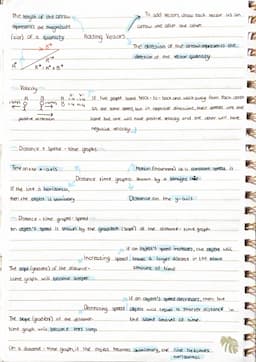 The length of the arrow
represents the magnitude
(size) of a quantity
Adding Vectors
To add vectors, draw each vector as an
arrow one after the other
The direction of the arrow represents the
direction of the vector quantity
- Velocity
If two people stand back-to-back and walk away from each other
at the same speed but in opposite directions, their speeds are the
same but one will have positive velocity and the other will have
negative velocity
positive direction
- Distance & Speed - time graphs
Time on the x-axis
Motion (movement) at a constant speed is
Distance time graphs
shown by a straight line
If the line is horizontal,
then the object is stationary
Distance on the y-axis
- Distance - time graph: speed
An object's speed is shown by the gradient (slope) of the distance-time graph
If an object's speed increases, the object will
Increasing speed
travel a larger distance in the same
amount of time
The slope (gradient) of the distance-
time graph will become steeper
If an object's speed decreases, then the
Decreasing speed
object will travel a shorter distance in
the same amount of time
The slope (gradient) of the distance-
time graph will become less steep
On a distance-time graph, if the object becomes stationary, the line becomes
horizontal